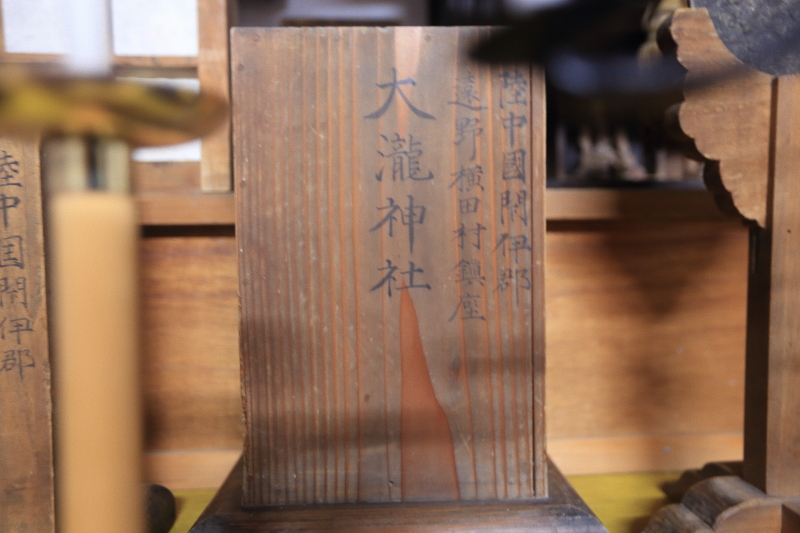 陸中國閉伊郡
遠野横田村鎮座
大瀧神社
陸中国閉伊郡